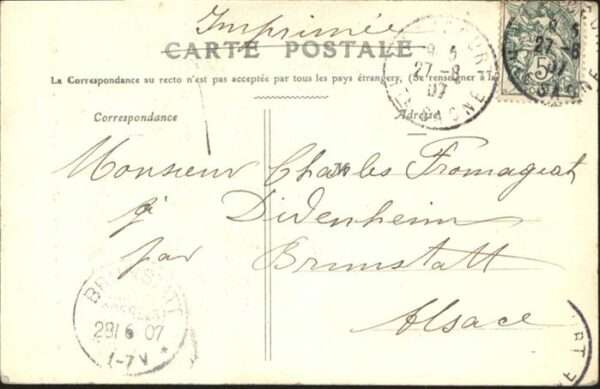 Imprimée
CARTE POSTALE
La Correspondance au recto n'est pas acceptée par tous les pays étrangers, (Se renseigner à la
Correspondance
Adresse
Monsieur Charles Fromageat
à Didenheim
par Brunstatt
Alsace
8 5
27-8
07
5
27-6
BRUNSTATT
28/6 07
1-7 V